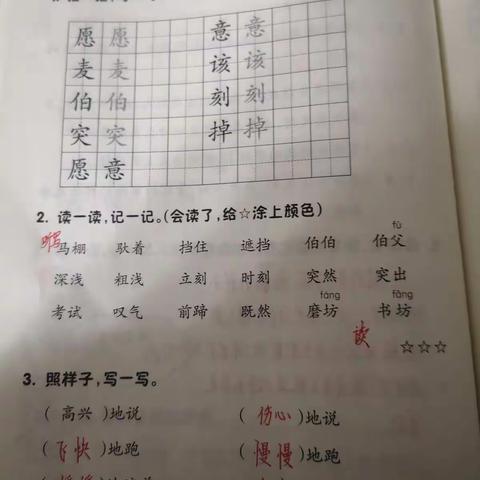 愿 愿 意 意
麦 麦 该 该
伯 伯 刻 刻
突 突 掉 掉
愿 意
2. 读一读,记一记。(会读了,给☆涂上颜色)
fù
马棚 驮着 挡住 遮挡 伯伯 伯父
深浅 粗浅 立刻 时刻 突然 突出
fáng fāng
考试 叹气 前蹄 既然 磨坊 书坊
读 ☆☆☆
3. 照样子,写一写。
( 高兴 )地说 ( 伤心 )地说
( 飞快 )地跑 ( 慢慢 )地跑